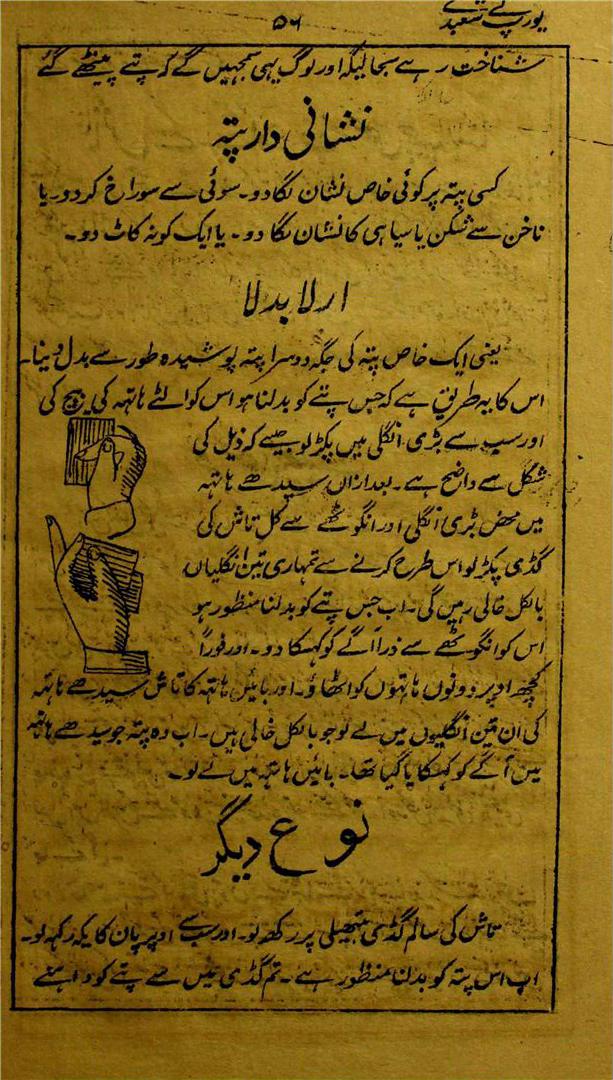 یورپ کے شعبدے
۵۶
شناخت رہے سجالیگا اور لوگ یہی سمجہیں گے کہ پتے پھینٹے گئے
نشانی دار پتہ
کسی پتہ پر کوئی خاص نشان لگا دو۔ سوئی سے سوراخ کر دو۔ یا
ناخن سے شکن یا سیاہی کا نشان لگا دو۔ یا ایک کونہ کاٹ دو۔
ادلا بدلا
یعنی ایک خاص پتہ کی جگہ دوسرا پتہ پوشیدہ طور سے بدل دینا۔
اس کا یہ طریق ہے کہ جس پتے کو بدلنا ہو اس کو الٹے ہاتہہ کی بیچ کی
اور سب سے بڑی انگلی میں پکڑ لو جیسے کہ ذیل کی
شکل سے واضح ہے۔ بعد ازاں سیدھے ہاتہہ
میں بڑی انگلی اور انگوٹھے سے کل تاش کی
گڈی پکڑ لو اس طرح کرنے سے تمہاری تین انگلیاں
بالکل خالی رہیں گی۔ اب جس پتے کو بدلنا منظور ہو
اس کو انگوٹھے سے ذرا آگے کو کہسکا دو۔ اور فوراً
کچھ اوپر دونوں ہاتہوں کو اٹھاؤ۔ اور بائیں ہاتہہ کا تاش سیدھے ہاتہہ
کی ان تین انگلیوں میں لے لو جو بالکل خالی ہیں۔ اب وہ پتہ جو سیدھے ہاتہہ
میں آگے کو کہسکایا گیا تھا۔ بائیں ہاتہہ میں لے لو۔
نوع دیگر
تاش کی سالم گڈی ہتھیلی پر رکھ لو۔ اور سب سے اوپر پان کا یکہ رکہہ لو۔
اب اس پتہ کو بدلنا منظور ہے۔ تم گڈی میں سے پتے کو داہنے